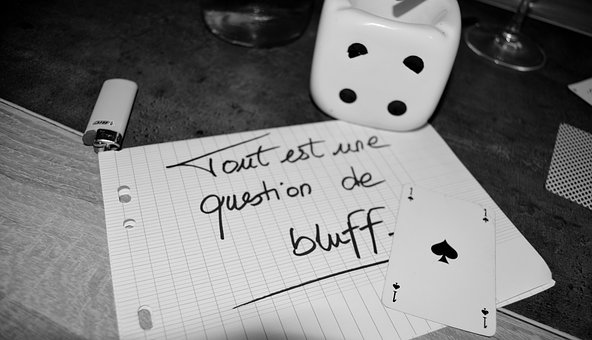 Tout est une
question de
bluff.
1
1
1
1